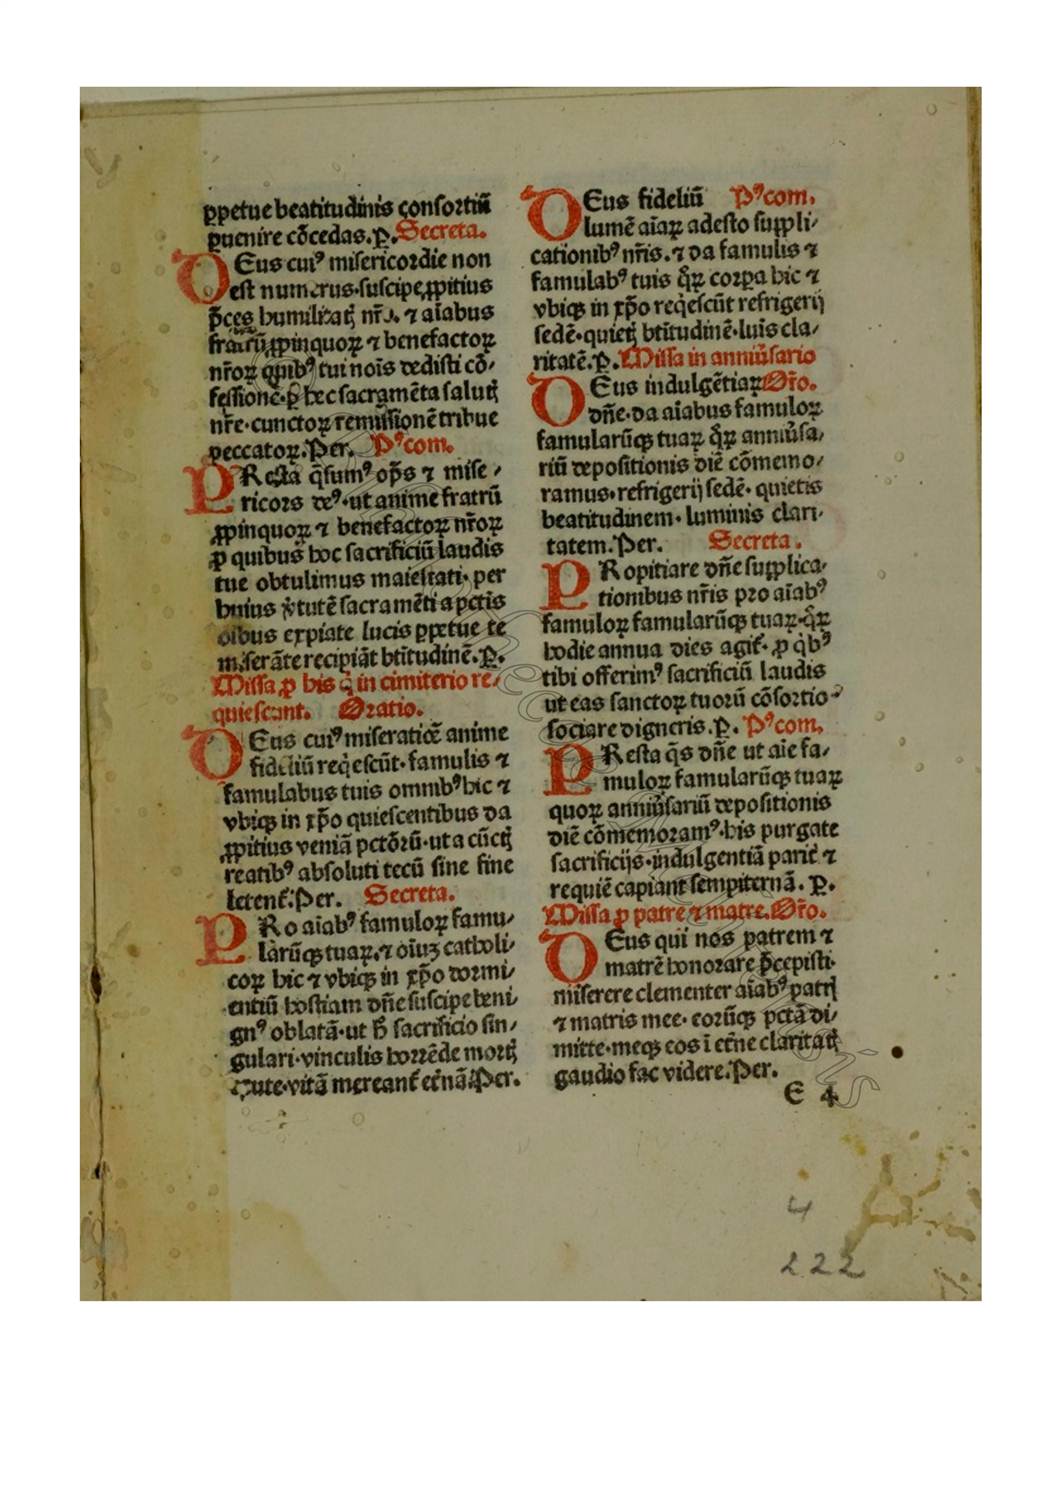 ꝑpetue beatitudinis conſortiū
ꝑuenire cōcedas.ꝑ. Secreta.
DEus cuiꝰ miſericordie non
eſt numerus·ſuſcipe ꝓpitius
p̄ces humilitatꝭ nr̄e. ⁊ aīabus
fratrū ꝓpinquoꝝ ⁊ benefactoꝝ
nr̄oꝝ qͥbꝰ tui noīs dediſti cō⸗
feſſionē·ꝑ hec ſacramēta ſalutꝭ
nr̄e·cunctoꝝ remiſſionē tribue
peccatoꝝ.Per. Pꝰcom.
PReſta q̄ſumꝰ op̄s ⁊ miſe⸗
ricors deꝰ·ut anime fratrū
ꝓpinquoꝝ ⁊ benefactoꝝ nr̄oꝝ
ꝓ quibus hoc ſacrificiū laudis
tue obtulimus maieſtati· per
huius v̓tutē ſacramēti a pctīs
oībus expiate lucis ꝑpetue te
miſerāte recipiāt btītudinē.ꝑ.
Miſſa ꝓ his qͥ in cimiterio re⸗
quieſcunt. Oratio.
DEus cuiꝰ miſeratiōe anime
fideliū reqͥeſcūt· famulis ⁊
famulabus tuis omnibꝰ hic ⁊
vbiqꝫ in xp̄o quieſcentibus da
ꝓpitius veniā pctōrū·ut a cūctꝭ
reatibꝰ abſoluti tecū ſine fine
letent᷑.Per. Secreta.
PRo aīabꝰ famuloꝝ famu⸗
larūqꝫ tuaꝝ.⁊ oīuꝫ catholi⸗
coꝝ hic ⁊ vbiqꝫ in xp̄o dormi⸗
entiū hoſtiam dn̄e ſuſcipe beni⸗
gnꝰ oblatā·ut h̄ ſacrificio ſin⸗
gulari·vinculis horrēde mortꝭ
exute·vitā mereant᷑ et̄nā.Per.
DEus fideliū Pꝰcom.
lumē aīaꝝ adeſto ſuppli⸗
cationibꝰ nr̄is. ⁊ da famulis ⁊
famulabꝰ tuis q̄ꝝ corꝑa hic ⁊
vbiqꝫ in xp̄o reqͥeſcūt refrigerij
ſedē·quietꝭ btītudinē·luīs cla⸗
ritatē.ꝑ. Miſſa in anniu̓ſario
DEus indulgētiaꝝ Or̄o.
dn̄e·da aīabus famuloꝝ
famularūqꝫ tuaꝝ q̄ꝝ anniu̓ſa⸗
riū depoſitionis diē cōmemo⸗
ramus·refrigerij ſedē· quietis
beatitudinem· luminis clari⸗
tatem.Per. Secreta.
PRopitiare dn̄e ſupplica⸗
tionibus nr̄is pro aīabꝰ
famuloꝝ famularūqꝫ tuaꝝ·q̄ꝝ
hodie annua dies agit᷑· ꝓ qͥbꝰ
tibi offerimꝰ ſacrificiū laudis
ut eas ſanctoꝝ tuorū cōſortio
ſociare digneris.ꝑ. Pꝰcom.
PReſta q̄s dn̄e ut aīe fa⸗
muloꝝ famularūqꝫ tuaꝝ
quoꝝ anniu̓ſariū depoſitionis
diē cōmemoramꝰ·his purgate
ſacrificijs·indulgentiā parit᷑ ⁊
requiē capiant ſempiternā. ꝑ.
Miſſa ꝓ patre ⁊ matre. Or̄o.
DEus qui nos patrem ⁊
matrē honorare p̄cepiſti·
miſerere clementer aīabꝰ patrꝭ
⁊ matris mee· eorūqꝫ pctā di⸗
mitte·meqꝫ eos ī et̄ne claritatꝭ
gaudio fac videre.Per.
E 4
4
222